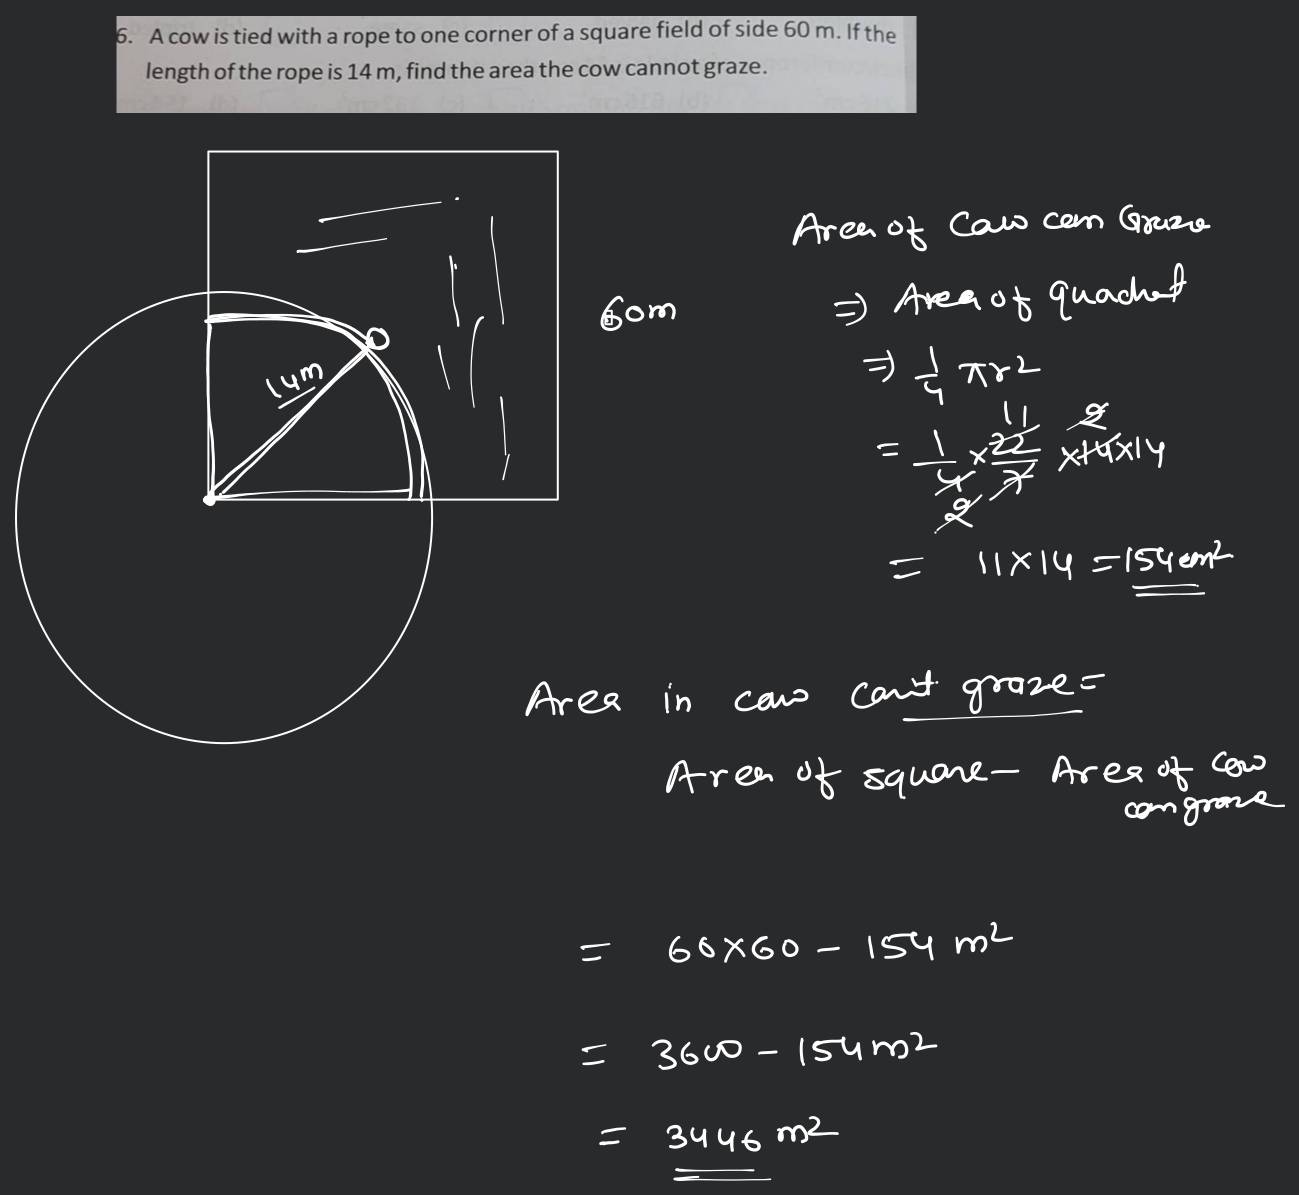 6. A cow is tied with a rope to one corner of a square field of side 60 m. If the
length of the rope is 14 m, find the area the cow cannot graze.
14m
60m
Area of Cow can Graze
⇒ Area of quadret
⇒ 1/4 πr2
= 1/4 × 22/7 × 14 × 14
11 2
2
= 11 × 14 = 154 cm2
Area in cow can't graze =
Area of square – Area of cow
can graze
= 60×60 – 154 m2
= 3600 – 154 m2
= 3446 m2